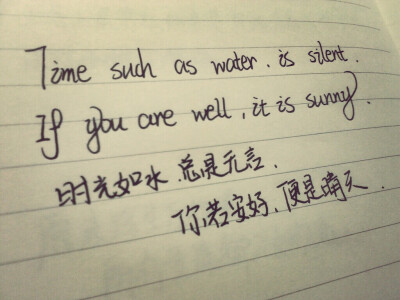 Time such as water. is silent.
If you are well, it is sunny.
时光如水.总是无言.
你若安好.便是晴天.